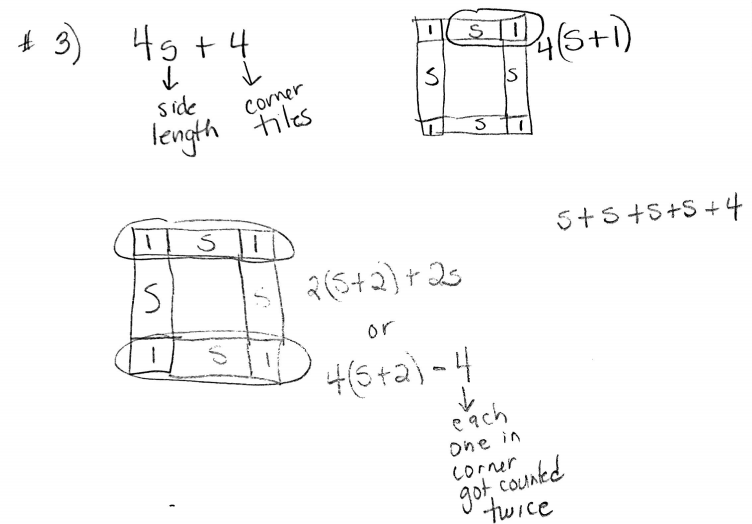 # 3) 4s + 4
side
length
corner
tiles
1 s 1
4(s+1)
s s
1 s 1
s+s+s+s+4
1 s 1
s s
1 s 1
2(s+2)+2s
or
4(s+2) - 4
each
one in
corner
got counted
twice